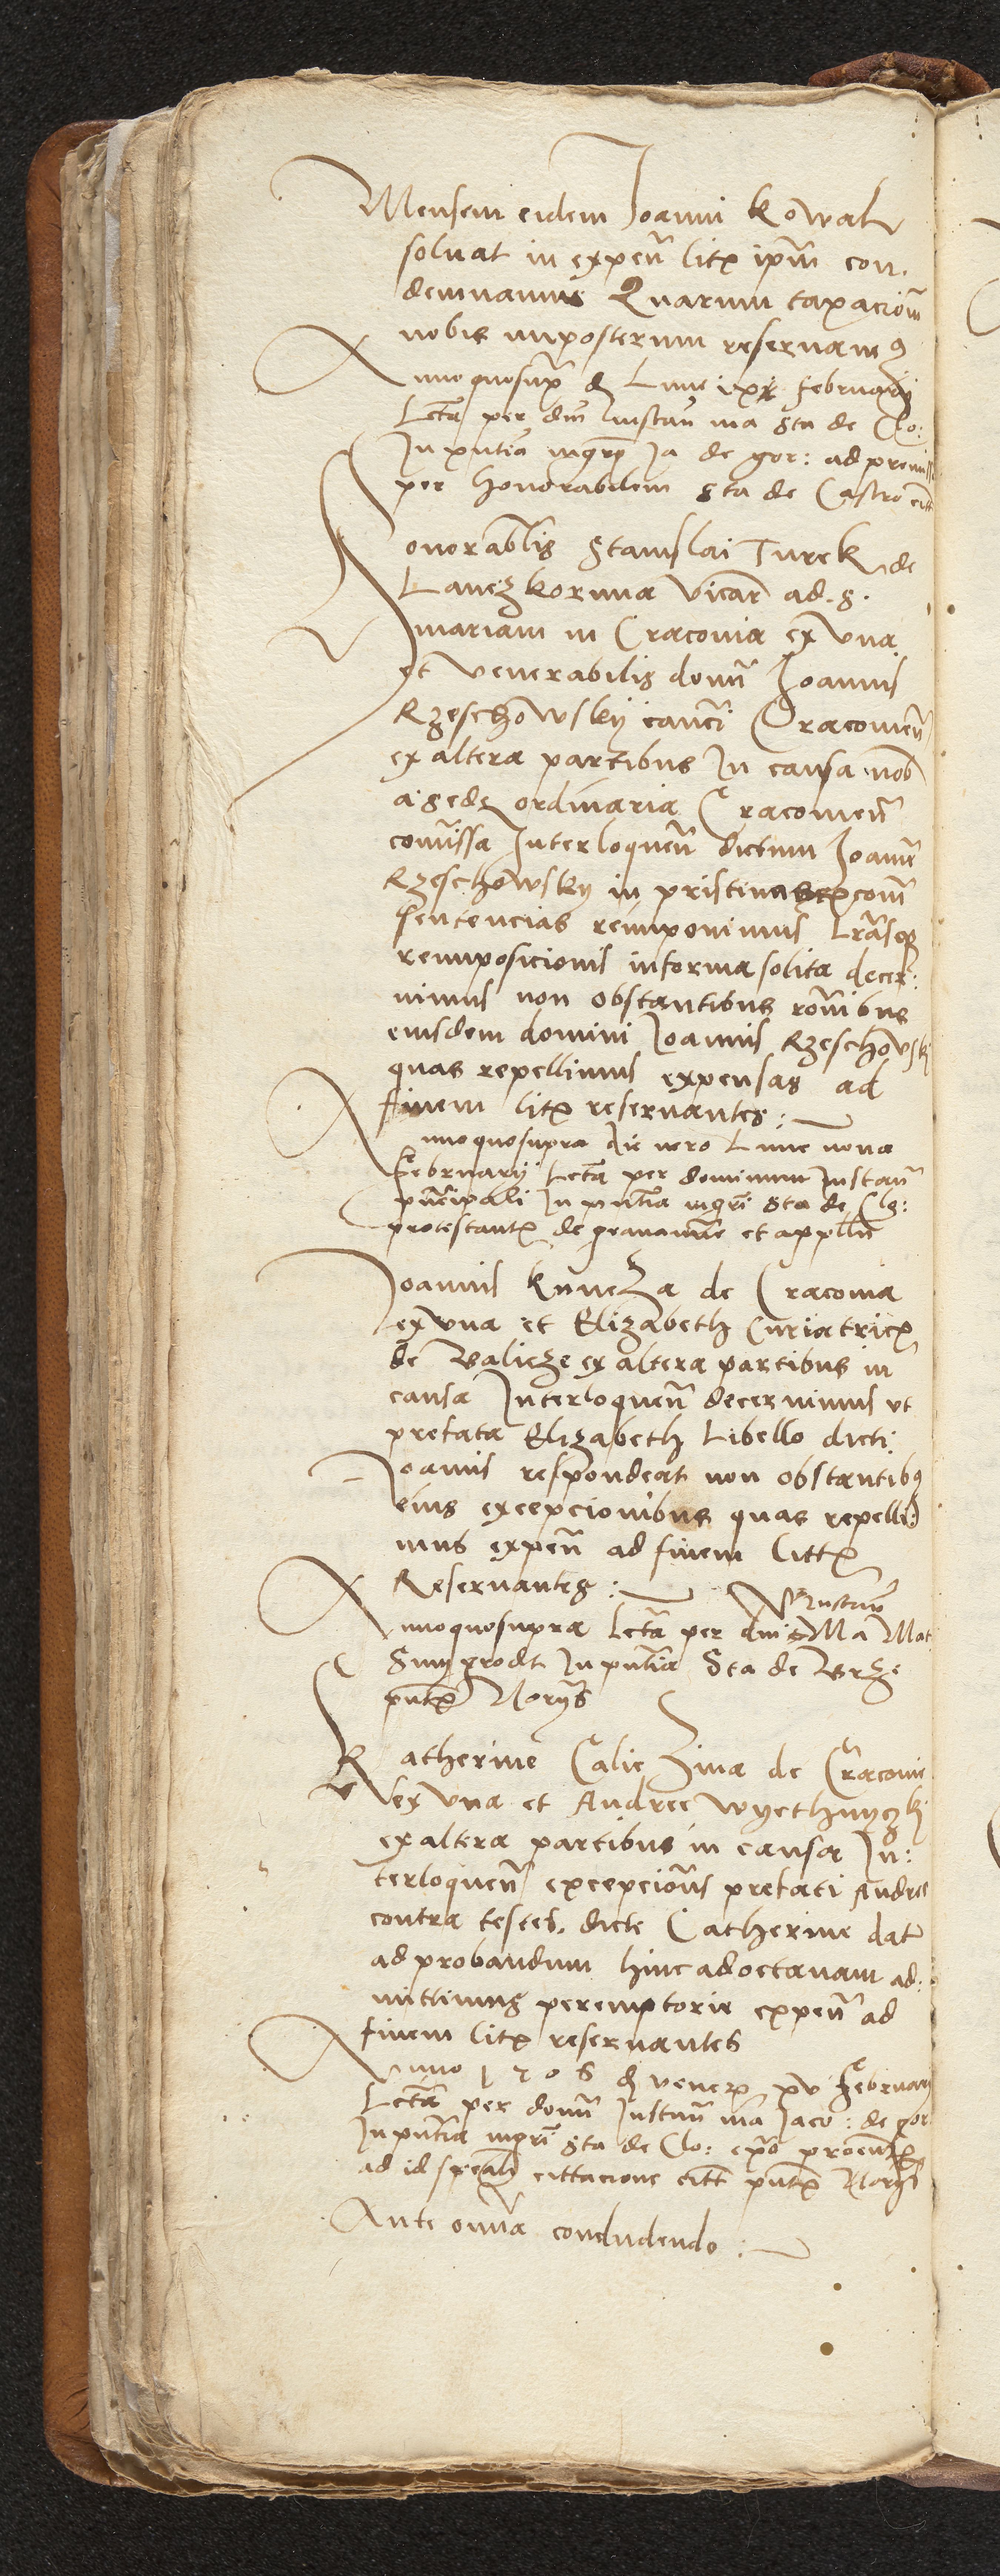 Mensem eidem Joanni Kowal
soluat in expen̄ litꝭ ipm̄ con.
demnamus Quarum taxacionē
nobis imposterum reseruamꝰ
Annoquosupͣ d Lune ixͣ Februarij
Lecta per dnm̄ Instan̄ ma Sta de Clo:
In pn̄tia mgrī Ja de gor: ad premiss
per honorabilem Sta de Castro citt
Honorabīlis Stanislai Turek de
Lanczkoruna vicarī ad. S.
mariam in Cracouia ex vna
et venerabilis domī Joannis
Rzeschowsky cancī Cracouien̄
ex altera partibus In causa nob
a sede ordinaria Cracouien̄
comissa Interloquen̄ dictum Joannē
Rzeschowsky in pristinas excom̄
sentencias reimponimus Lrāsqꝫ
reimposicionis in forma solita decer:
nimus non obstantibus rōnibus
eiusdem domini Joannis Rzeschowskj
quas repellimus expensas ad
finem litꝭ reseruantes:
Annoquosupra die vero Lune nona
Februarij Lecta per dominum Instan̄
principali In pn̄tia mgrī Sta de Clo:
protestantꝭ de grauamine et applln̄
Joannis Knneza de Cracouia
ex vna et Elizabeth Curiatricꝭ
de Balicze ex altera partibus in
causa Interloquen̄ decernimus vt
prefata Elizabeth Libello dicti
Joannis respondeat non obstantibꝰ
eius excepcionibus quas repelli:
mus expen̄ ad finem Littꝭ
Reseruantes:
Instan̄
Annoquosupra Lecta per dm̄ Ma Mat
Smygrodt In pn̄tia Sta de Brze
pn̄tꝭ Norijs
Katherine Caliczina de Cracouie
ex vna et Andree Wyethnyczkj
ex altera partibus in causa In:
terloquen̄ excepcionīs prefati Andree
contra testes dicte Catherine dat
ad probandum hinc ad octauam ad:
mittimus peremptorie expen̄ ad
finem litꝭ reseruantes
Anno 1506 d venerꝭ xv Februarij
Lecta per domn̄ Instan̄ ma Jaco: de gor
In pn̄tia mgrī Sta de Clo:
ad id speālī cittacione citt pn̄tꝭ Norijs
Ante omīa concludendo: